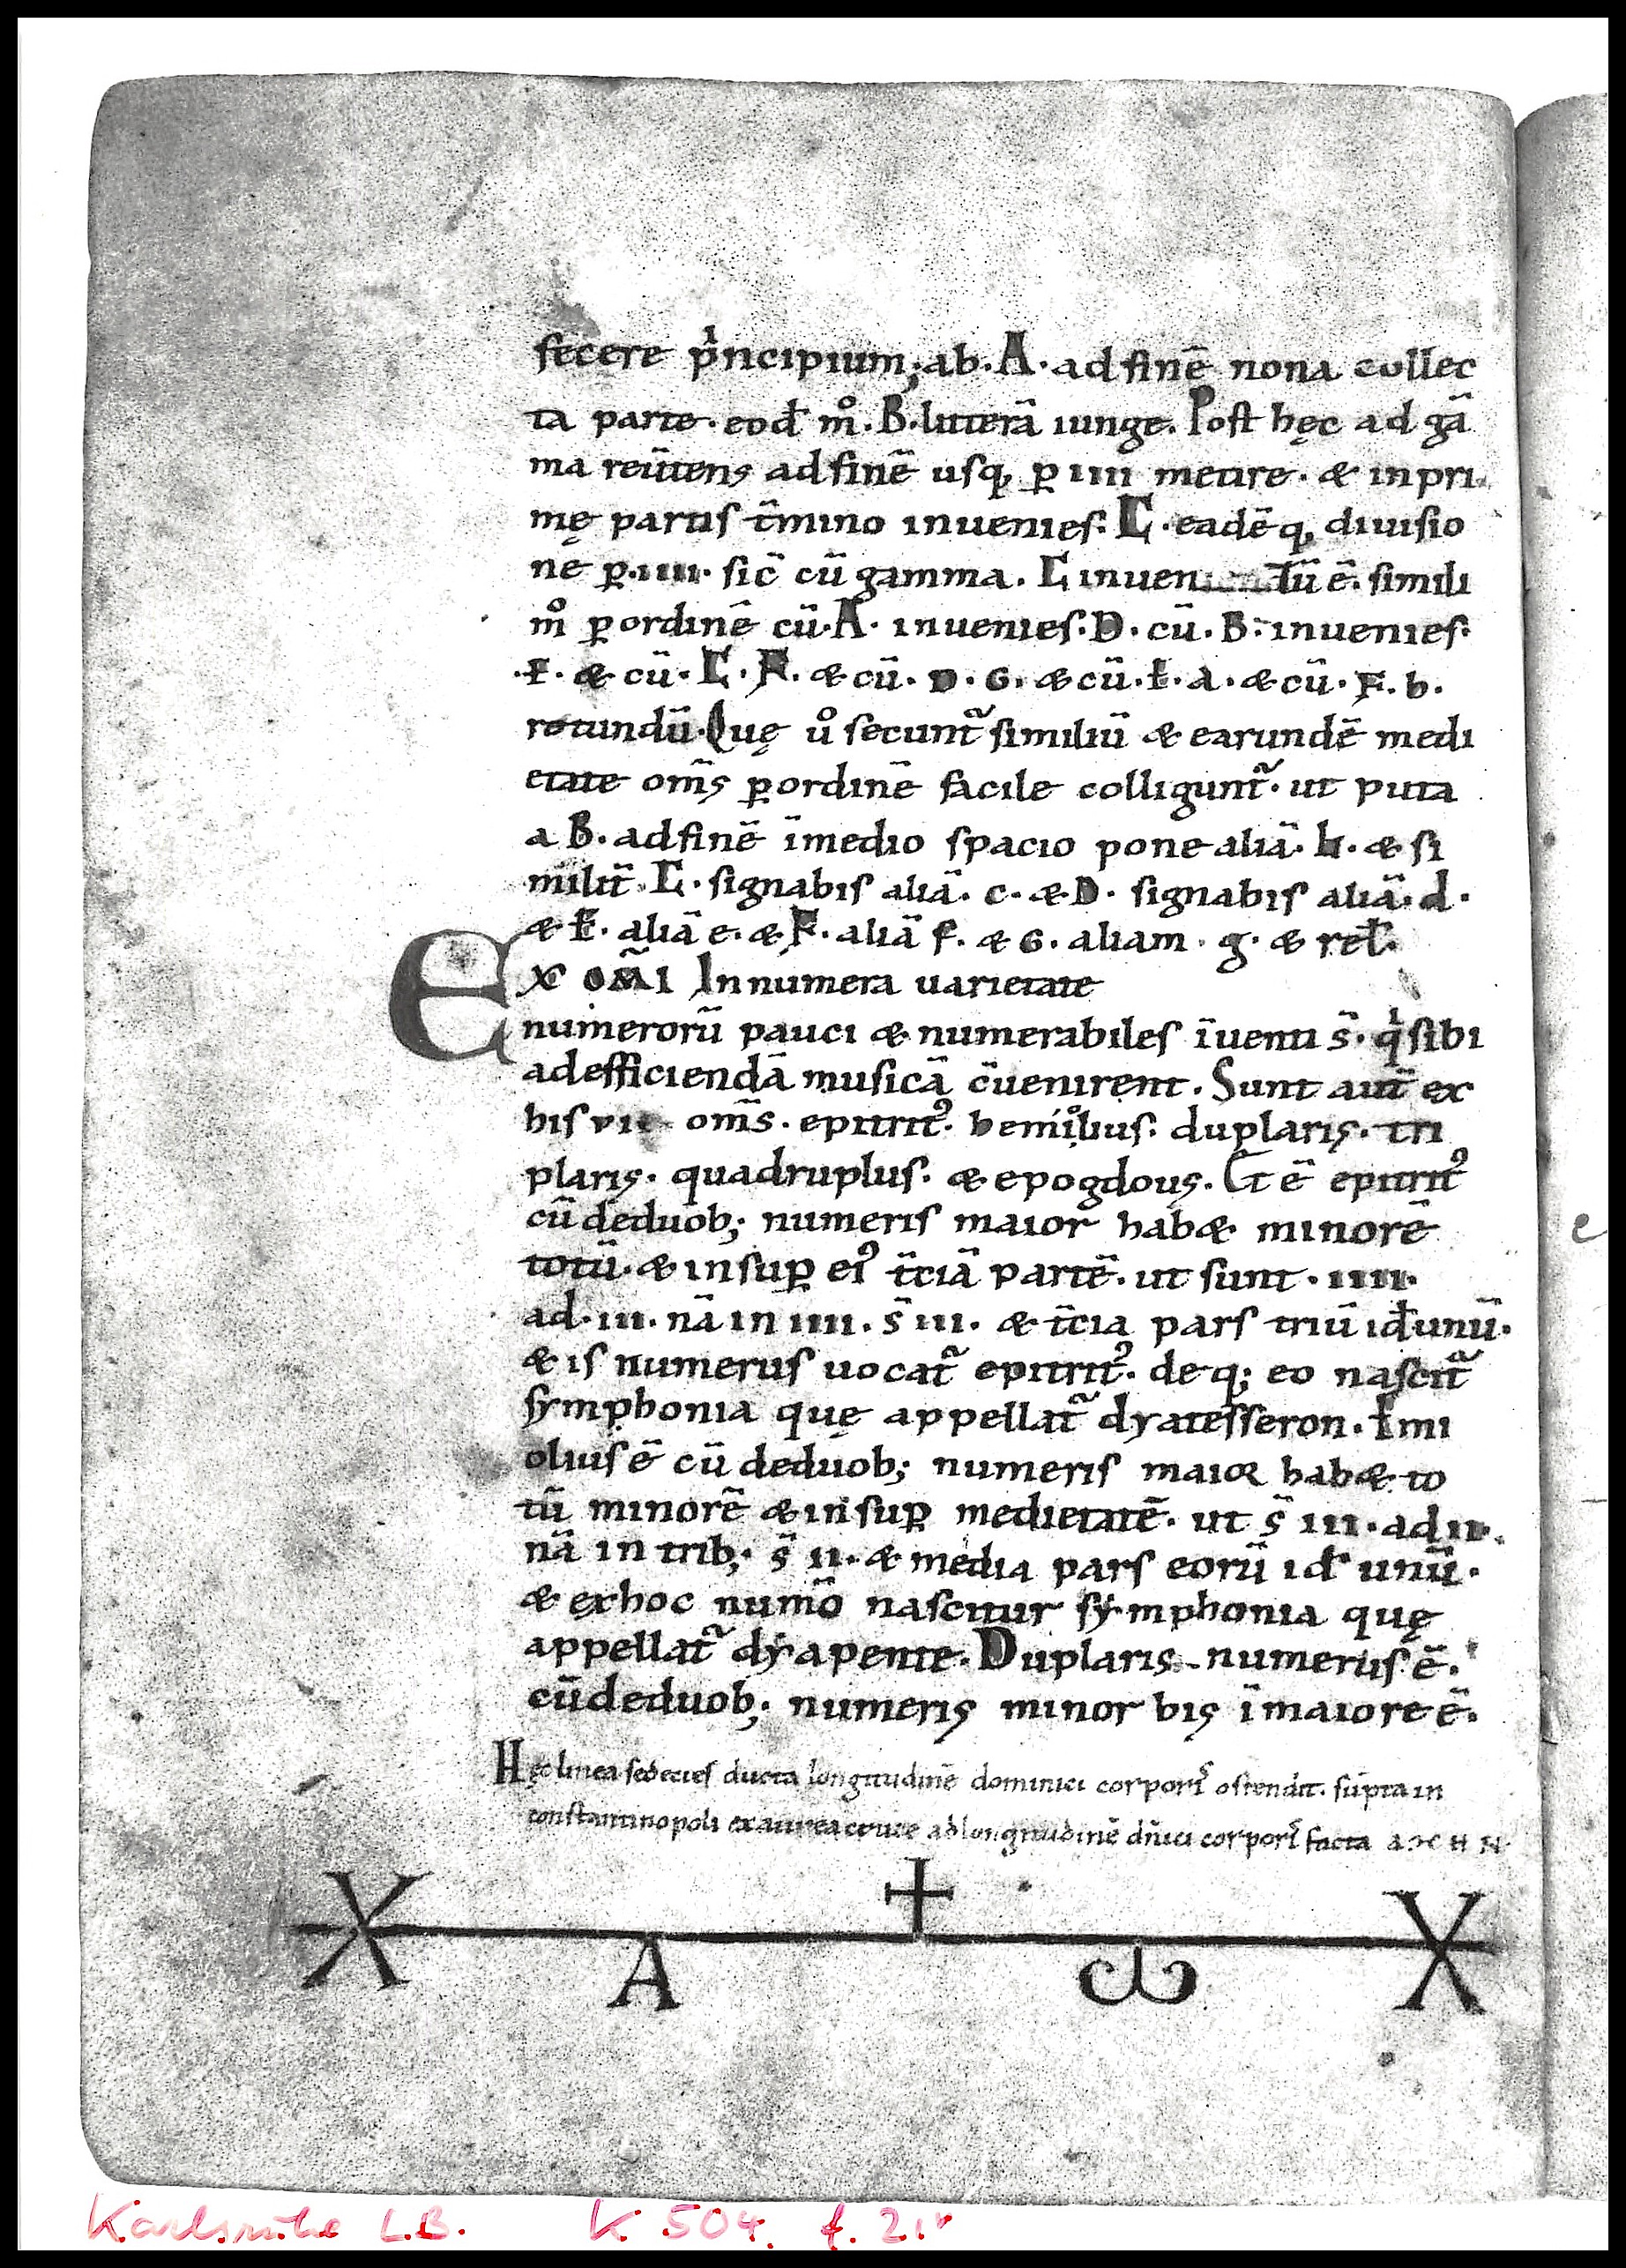 fecere p̍ncipium; ab. A. ad finē nona collec
ta parte. eod̄ m̊. B. litterā iunge. Post hęc ad gā
ma reūtens ad finē usq, ꝑ iiii metire. & in pri
mę partis t̄mino inuenies: C. eadēq, diuisio
nē ꝑ. iiii. sic̄ cū gamma. C inuen tū ē. simili
m̊ ꝑ ordinē cū. A. inuenies. D. cū. B. inuenies.
.E. & cū. C. F. & cū. D. G. & cū. E. a. & cū. F. b.
rotundū. Quę ů secunt᷑ similiū & earundē medi
etate om̄s ꝑ ordinē facile colligunt᷑. ut puta
a B. ad finē ī medio spacio pone aliā. h. & si
milit̄. C. signabis aliā. c. & D. signabis aliā. d.
& E. aliā e. & F. aliā f. & G. aliam. g. & rel̄.
Ex om̄i Innumera uarietate
numerorū pauci & numerabiles īuenti s̄. q̍ sibi
ad efficiendā musicā c̄uenirent. Sunt aut̄ ex
his vi om̄s. epitrit᾿. hemi̊lius. duplaris. tri
plaris. quadruplus. & epogdous. Et ē epitrit᾿
cū de duob; numeris maior hab& minorē
totū. & insuꝑ ei᾿ t̄ciā partē. ut sunt. iiii.
ad. iii. nā in iiii. s̄ iii. & t̄cia pars triū id̄ unū.
& is numerus uocat᷑ epitrit᾿. de q; eo nascit᷑
symphonia quę appellat᷑ dyatesseron. Emi
olius ē cū de duob; numeris maior hab& to
tū minorē & insuꝑ medietatē. ut s̄ iii. ad ii.
nā in trib; s̄ ii. & media pars eorū id̄ unū.
& ex hoc num̄o nascitur symphonia quę
appellat᷑ dyapente. Duplaris numerus ē.
cū de duob; numeris minor bis ī maiore ē.
Hęc linea sedecies ducta longitudinē dominici corpor̄ ostendit. sūpta in
constantinopoli ex aurea cruce ad longitudinē dn̄ici corpor̄ facta
X A + ω X
Karlsruhe L.B. K 504. f. 21v
e